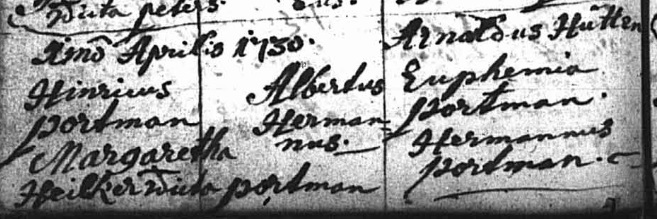 dicta peters.
Ximo Aprilis 1730.
Hinricus
portman
Margaretha
Heilker dicta portman
Albertus
Herman=
nus.
Arnoldus Hütten
Euphemia
portman.
Hermannus
portman.